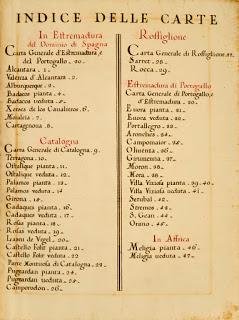 INDICE DELLE CARTE
In Estremadura
del Dominio di Spagna
Carta Generale d'Estremadura, e
del Portogallo . 20 .
Alcantara . 1 .
Valenza d'Alcantara . 2 .
Alburquerque . 3 .
Badacos pianta . 4 .
Badacos veduta . 5 .
Xeres de los Cavalieros . 6 .
Moraleia . 7 .
Cartagenoa . 8 .
Catalogna
Carta Generale di Catalogna . 9 .
Terragona . 10 .
Ostalique pianta . 11 .
Ostalique veduta . 12 .
Palamos pianta . 13 .
Palamos veduta . 14
Girona . 15 .
Cadaques pianta . 16 .
Cadaques veduta . 17 .
Rosas pianta . 18 .
Rosas veduta . 19 .
Leani de Vogel . 20 .
Castello Folit pianta . 21 .
Castello Folit veduta . 22
Parte Montuosa di Catalogna . 23 .
Puguardan pianta . 24 .
Puguardan veduta . 25 .
Camperodon . 26 .
Rossiglione
Carta Generale di Rossiglione . 27 .
Sarret . 28 .
Rocca . 29 .
Estremadura di Portogallo
Carta Generale di Portogallo e
d'Estremadura . 20 .
Euora pianta . 31 .
Euora veduta . 32 .
Portallegro . 33 .
Aronches . 34 .
Campomaior . 35 .
Oliuenza . 36 .
Girumenha . 37 .
Moron . 38 .
Mora . 38 .
Villa Viziosa pianta . 39 . 40 .
Villa Viziosa veduta . 41 .
Setubal . 42 .
Stremos . 43 .
S. Gean . 44 .
Orano . 45 .
In Affrica
Meligia pianta . 46 .
Meligia veduta . 47 .